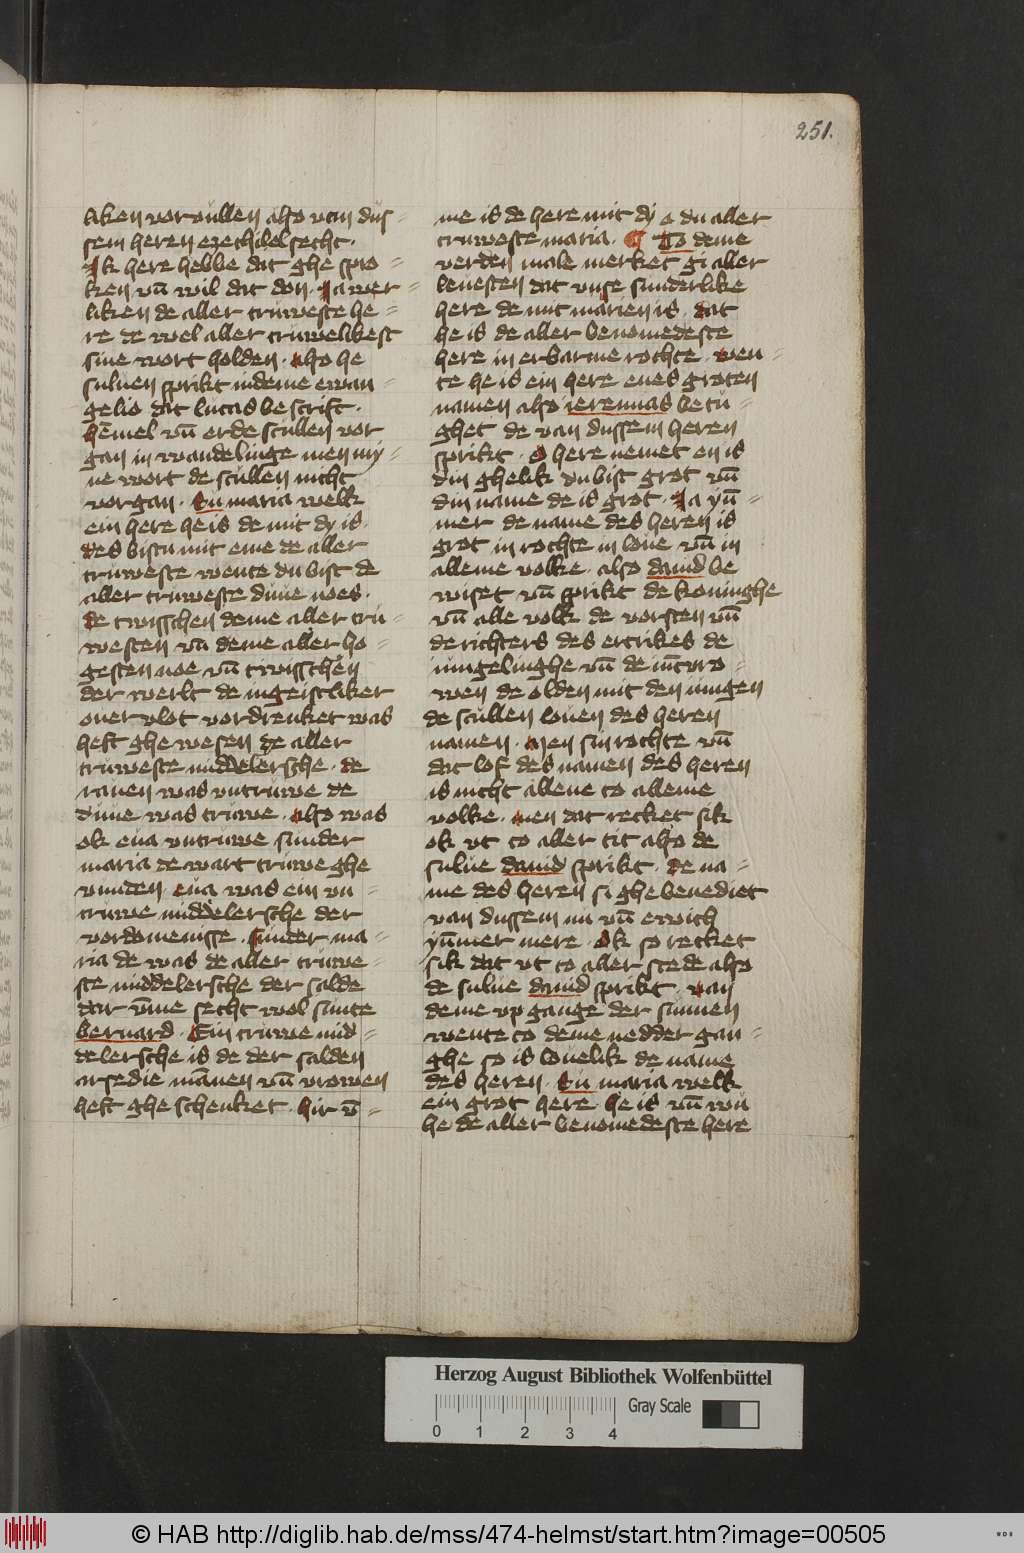 251.
liken voruullen also van dus=
sem heren ezechihel secht·
Jk here hebbe dat ghe spro=
ken vn̄ wil dat don· Ja wer=
liken de aller truweste he=
re de wel aller truwelikest
sine wort holden· also he
suluen sprikt in deme ewan=
gelio dat lucas bescrift·
he̅mel vn̄ erde scullen vor
gan in wandelinge men my=
ne wort de scullen nicht
vorgan· Su maria welk
ein here he is de mit dy is·
des bistu mit eme de aller
truweste wente du bist de
aller truweste duue noes·
de twisschen deme aller tru=
westen vn̄ deme aller ho=
gesten noe vn̄ twisschen
der werlt de in geistliker
ouer vlot vordrenket was
heft ghe wesen de aller
truweste middelersche· de
rauen was vntruwe de
duue was truwe· also was
ok eua vntruwe sunder
maria de wart truwe ghe
vunden· eua was ein vn=
truwe middelersche der
vordomenisse· sunder ma=
ria de was de aller truwe=
ste middelersche der salde
dar vm̄e secht wol sunte
bernard· Ein truwe mid=
delersche is de der salden
arsedie man̄en vn̄ vrowen
heft ghe schenket· hir v̄=
me is de here mit dy o du aller
truweste maria· ¶ To deme
verden male merket gi aller
leuesten dat vnse sunderlike
here de mit marien is· dat
he is de aller benomedeste
here in erbarme rochte· wen=
te he is ein here enes groten
namen also ieremias betu=
ghet de van dussem heren
sprikt· O here nemet en is
din ghelik du bist grot vn̄
din name de is grot· Ja yn̄=
mer de name des heren is
grot in rochte in loue vn̄ in
alleme volke· also dauid be
wiset vn̄ sprikt de koninghe
vn̄ alle volk de vorsten vn̄
de richters des ertrikes de
iungelinghe vn̄ de iu̅cvro=
wen de olden mit den iungen
de scullen louen des heren
namen· men sin rochte vn̄
dat lof des namen des heren
is nicht allene to alleme
volke· men dat recket sik
ok vt to aller tit also de
sulue dauid sprikt· De na=
me des heren si ghebenediet
van dussem nu vn̄ ewich
yn̄mer mere· Ok so recket
sik dat vt to aller stede also
de sulue dauid sprikt· van
deme vp gange der sunnen
wente to deme nedder gan=
ghe so is louelik de name
des heren· Su maria welk
ein grot here he is vn̄ wu
he de aller benomedeste here
Herzog August Bibliothek Wolfenbüttel
Gray Scale
0 1 2 3 4
© HAB http://diglib.hab.de/mss/474-helmst/start.htm?image=00505